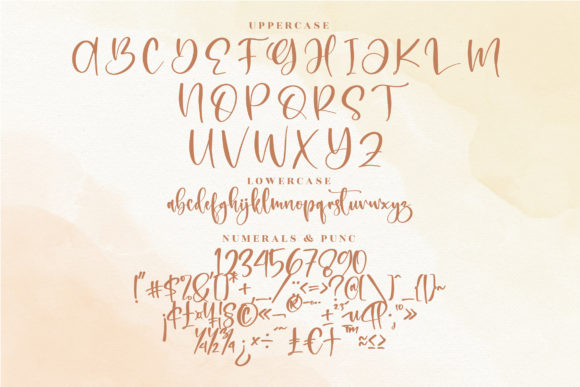 UPPERCASE
ABCDEFGHIJKLM
NOPQRST
UVWXYZ
LOWERCASE
abcdefghijklmnopqrstuvwxyz
NUMERALS & PUNC
1234567890
!"#$%&'()*+,-./:;<=>?@[\]^_{|}~
¡¢£¤¥¦§©«¬®¯°±²³´µ¶·¸¹º»
¼½¾¿×÷ˆ˜£€™≈≤≥